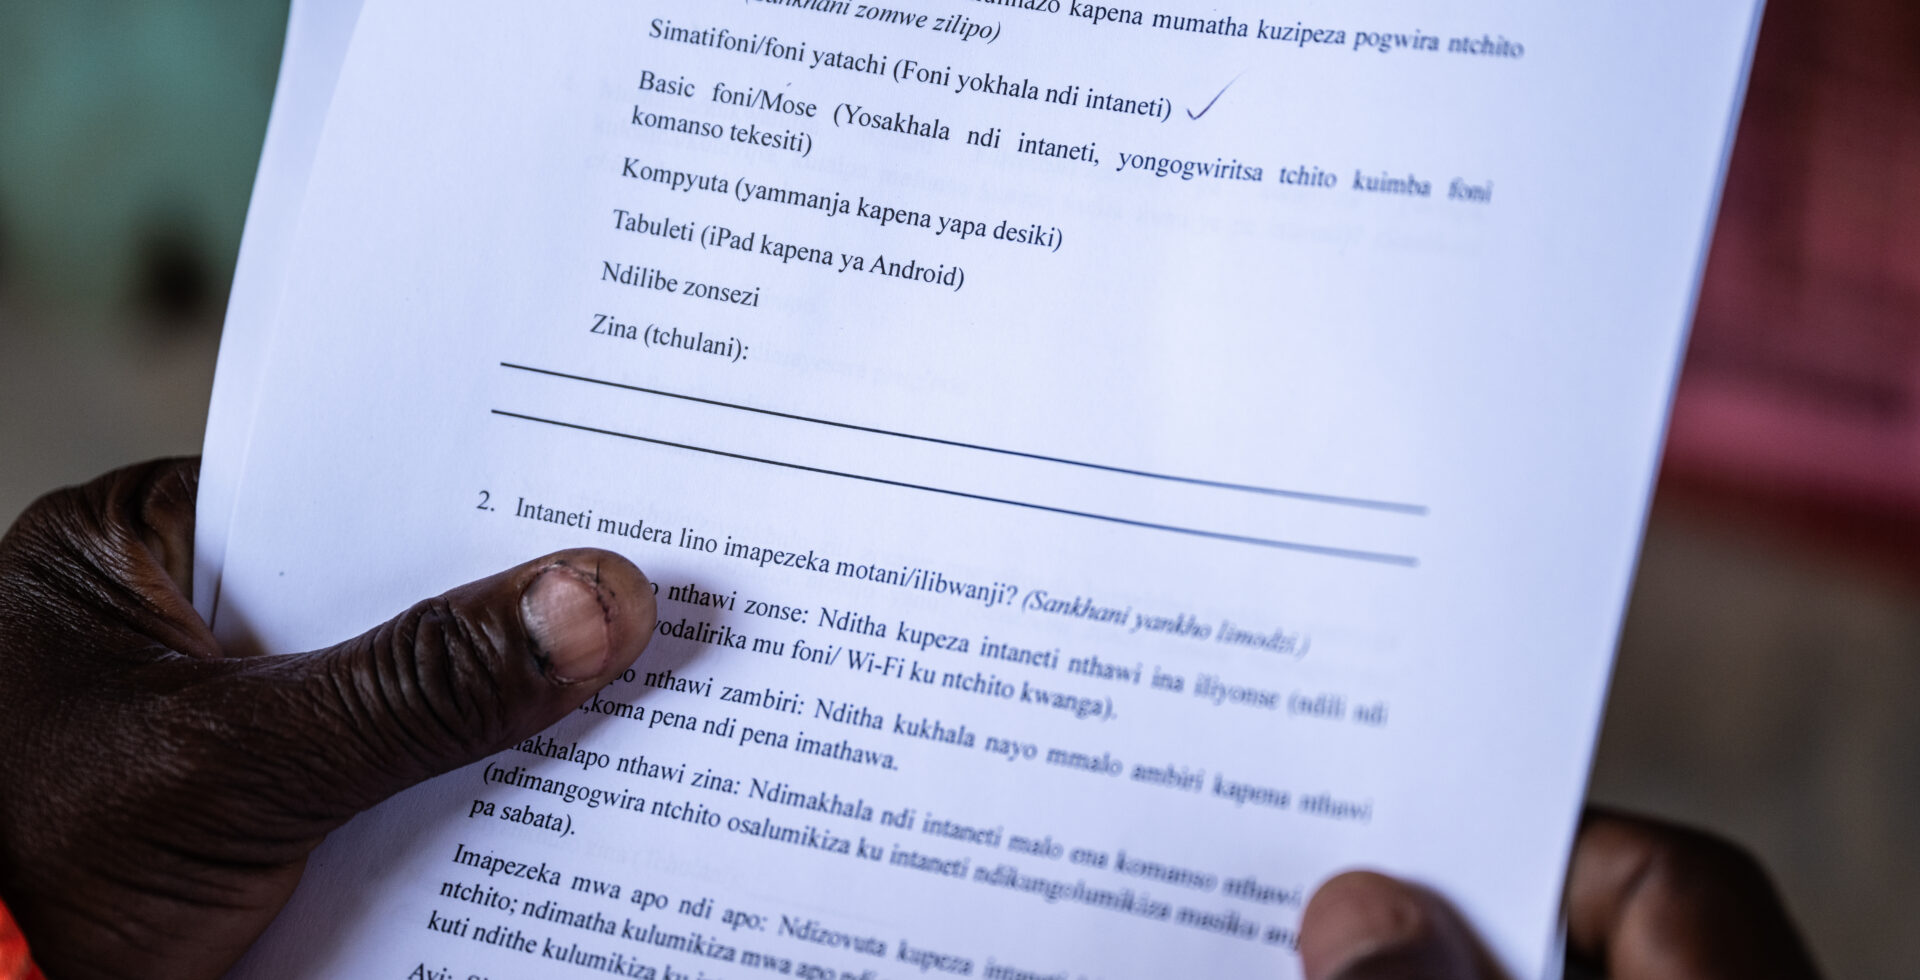 kapena mumatha kuzipeza pogwira ntchito
(Sankhani zomwe zilipo)
Simatifoni/foni yatachi (Foni yokhala ndi intaneti) ✓
Basic foni/Mose (Yosakhala ndi intaneti, yongogwiritsa tchito kuimba foni
komanso tekesiti)
Kompyuta (yammanja kapena yapa desiki)
Tabuleti (iPad kapena ya Android)
Ndilibe zonsezi
Zina (tchulani):
2. Intaneti mudera lino imapezeka motani/ilibwanji? (Sankhani yankho limodzi.)
nthawi zonse: Nditha kupeza intaneti nthawi ina iliyonse (ndili ndi
yodalirika mu foni/ Wi-Fi ku ntchito kwanga).
nthawi zambiri: Nditha kukhala nayo mmalo ambiri kapena nthawi
koma pena ndi pena imathawa.
nthawi zina: Ndimakhala ndi intaneti malo ena komanso nthawi
(ndimangogwira ntchito osalumikiza ku intaneti ndikungolumikiza masiku
pa sabata).
Imapezeka mwa apo ndi apo: Ndizovuta kupeza
ntchito; ndimatha kulumikiza mwa apo ndi
kuti ndithe kulumikiza ku